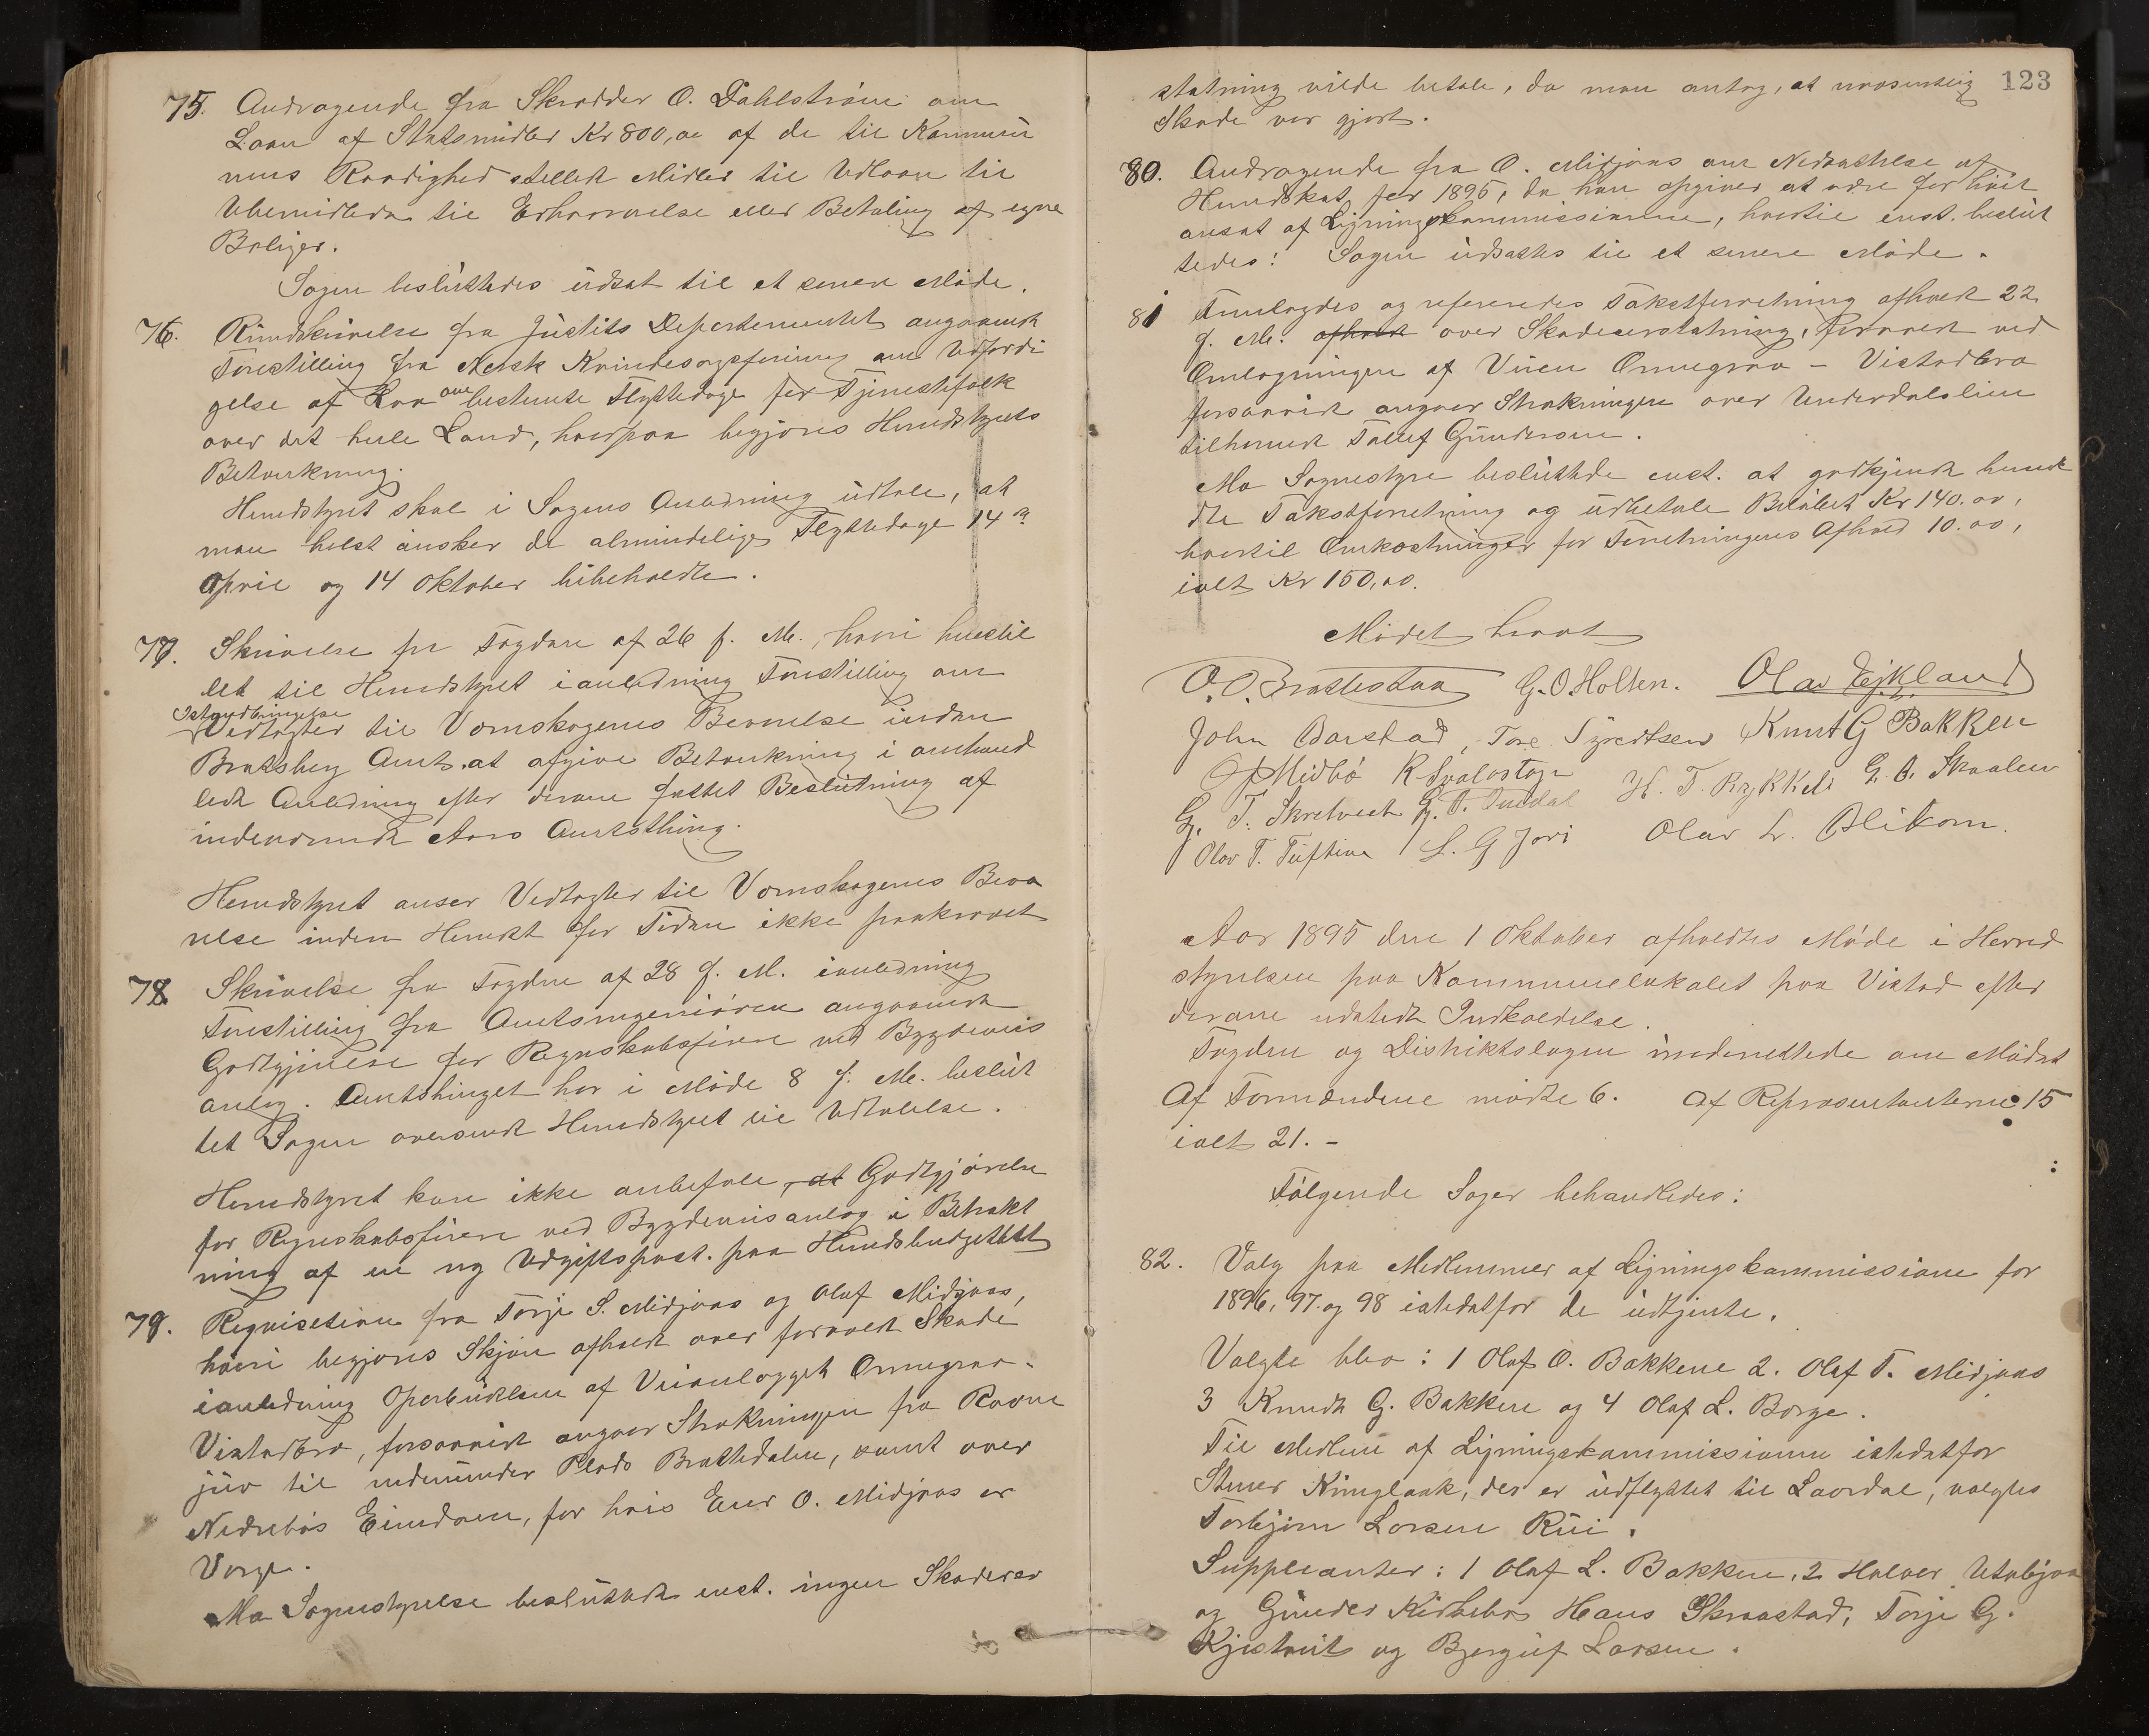 75. Andragende fra Skrædder O. Dahlstrøm om
Laan af Statsmidler Kr 800,00 af de til Kommu
nens Raadighed stillede Midler til Udlaan til
Ubemidlede til Erhvervelse eller Betaling af egne
Boliger.
Sagen besluttedes udsat til et senere Møde.
76. Rundskrivelse fra Justits Departementet angaaende
Forestilling fra Norsk Kvindesagsforening om Udfærdi
gelse af Lov om bestemte Flyttedage for Tjenestefolk
over det hele Land, hvorpaa begjæres Herredstyrets
Betænkning.
Herredstyret skal i Sagens Anledning udtale, at
man helst ønsker de almindelige Flyttedage 14de
April og 14 Oktober bibeholdte.
77. Skrivelse fra Fogden af 26 f. M., hvori henstil
let til Herredstyret i anledning Forestilling om
Istandbringelse
Vedtægter til Vernskogenes Bevarelse inden
Bratsberg Amt. at afgive Betænkning i omhand
lede Anledning efter derom fattet Beslutning af
indeværende Aars Amtsthing.
Herredstyret anser Vedtægter til Vernskogenes Beva
relse inden Herredet for Tiden ikke paakrævet
78 Skrivelse fra Fogden af 28 f. M. ianledning
Forestilling fra Amtsingeniøren angaaende
Godtgjørelse for Regnskabsførere ved Bygdeveis
anlæg. Amtsthinget har i Møde 8 f. M. beslut
tet Sagen oversendt Herredstyret til Udtalelse.
Herredstyret kan ikke anbefale, at Godtgjørelse
for Regnskabsførere ved Bygdeveisanlæg i Betrakt
ning af en ny Udgiftspost. paa Herredsbudgettet
79. Requisition fra Torje S. Midjaas og Oluf Midjaas,
hvori begjæres Skjøn afholdt over forvoldt Skade
ianledning Oparbeidelsen af Veianlægget Ormegrav-
Vistadbro, forsaavidt angaar Strækningen fra Ravne
juv til nedenunder Plads Brattedalen, samt over
Nedrebøs Eiendom, for hvis Eier O. Midjaas er
Værge.
Mo Sognestyrelse besluttede enst. ingen Skadeser
123
statning vilde betale, da man antog, at uvæsentlig
Skade var gjort.
80. Andragende fra O. Midjaas om Nedsættelse af
Herredskat for 1895, da han opgiver at være for høit
ansat af Ligningskommissionen, hvortil enst. beslut
tedes: Sagen udsættes til et senere Møde.
81 Fremlagdes og refereredes Takstforretning afholdt 22
f. M. afholdt over Skadeserstatning, forvoldt ved
Omlægningen af Veien Ormegrav – Vistadbro
forsaavidt angaar Strækningen over Underdalslien
tilhørende Tallef Gunderson.
Mo Sognestyre besluttede enst. at godkjende henvd
dte Takstforretning og udbetale Beløbet Kr 140.00,
hvortil Omkostninger for Forretningens Afhold 10.00,
ialt Kr 150,00.
Mødet hævet
O. O. Brattestaa G. O Holten. Olav Eikland
John Barstad, Tore Sjurdsen Knut G Bakken
O Midbø R Svalastoga H. T. Rykkeli G. A. Skaalen
G. T. Skretveit G. T. Juvdal
Olav T. Tuftine L. G Jori Olav L. Blikom.
Aar 1895 den 1 Oktober afholdtes Møde i Herred
styrelsen paa Kommunelokalet paa Vistad efter
derom udstedt Indkaldelse.
Fogden og Distriktslægen underrettede om Mødet
Af Formændene mødte 6. Af Repræsentanterne 15
ialt 21. –
Følgende Sager behandledes:
82. Valg paa Medlemmer af Ligningskommissionen for
1896, 97. og 98 istedetfor de udtjente.
Valgte blev: 1 Olaf O. Bakkene 2. Olaf T. Midjaas
3 Knudt G. Bakken og 4 Olaf L. Borge.
Til Medlem af Ligningskommissionen istedetfor
Stener Kinglaak, der er udflyttet til Laardal, valgtes
Torbjørn Larsen Rui.
Suppleanter: 1 Olaf L. Bakken, 2 Halvor Utabjaa
og Gunder Kirkebø Hans Skraastad, Torje G.
Kjestveit og Bjergulf Larsen.